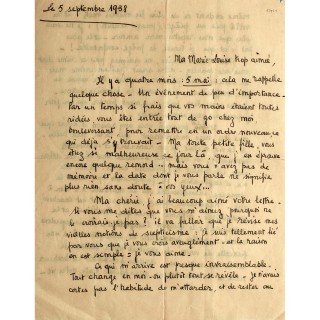 le 5 septembre 1938
Ma Marie-Louise trop aimée,
Il y a quatre mois : 5 mai ; cela me rappelle
quelque chose - Un événement de peu d'importance -
Par un temps si frais que vos mains étaient toutes
ridées vous êtes entrée tout de go chez moi.
bouleversant, pour remettre en un ordre nouveau ce
qui déjà s'y trouvait - Ma toute petite fille, vous
étiez si malheureuse ce jour là, que j'en éprouve
encore quelque remord - mais vous n'avez pas de
mémoire et la date dont je vous parle ne signifie
plus rien sans doute à vos yeux...
Ma chérie, j'ai beaucoup aimé votre lettre.
Si vous me dites que vous m'aimez, pourquoi ne
le croirais-je pas ? Il va falloir que je révise mes
vieilles notions de scepticisme ; je suis tellement lié
par vous que je vous crois aveuglément - et la raison
en est simple : je vous aime.
Ce qui m'arrive est presque invraisemblable.
Tout change en moi - ou plutôt tout se révèle - Je n'avais
certes pas l'habitude de m'attarder, et de rester ou